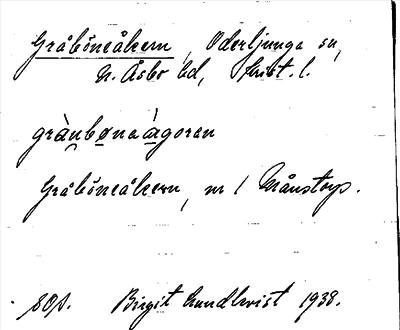 Gråböneåkern, Oderljunga sn,
N. Åsbo hd, Krist. l.
grànbønaàgoran
Gråböneåkern, nr 1 Månstorp.
sOp. Birgit Lundkvist 1938.